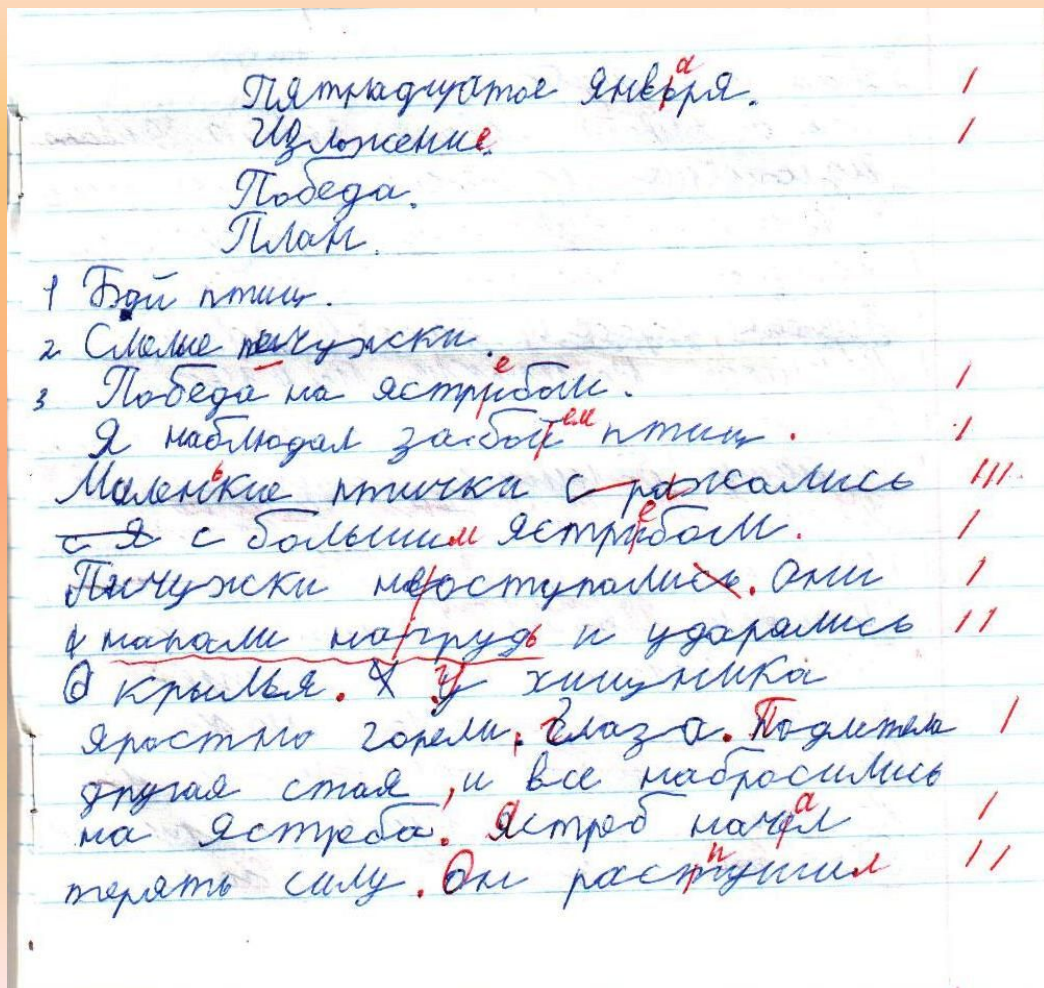 Пятнадцатое января.
Изложение.
Победа.
План.
1 Бой птиц.
2 Смелые пичужски.
3 Победа на ястребом.
Я наблюдал за боем птиц.
Маленькие птички с ражались
с я с большим ястребом.
Пичужски не оступались. Они
напали на грудь и ударялись
о крылья. У хищника
яростно горели, глаза. Подлетела
другая стая, и все набросились
на ястреба. Ястреб начал
терять силу. Он распушил